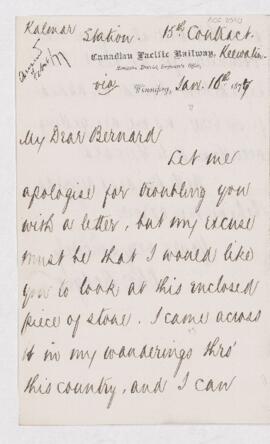 Kalmar Station. 15th Contract.
Keewatin.
Canadian Pacific Railway,
Engineer's Office,
via Winnipeg, Jan. 10th 1879
My Dear Bernard
Let me
apologise for troubling you
with a letter, but my excuse
must be that I would like
you to look at this enclosed
piece of stone. I came across
it in my wanderings thro'
this country, and I can